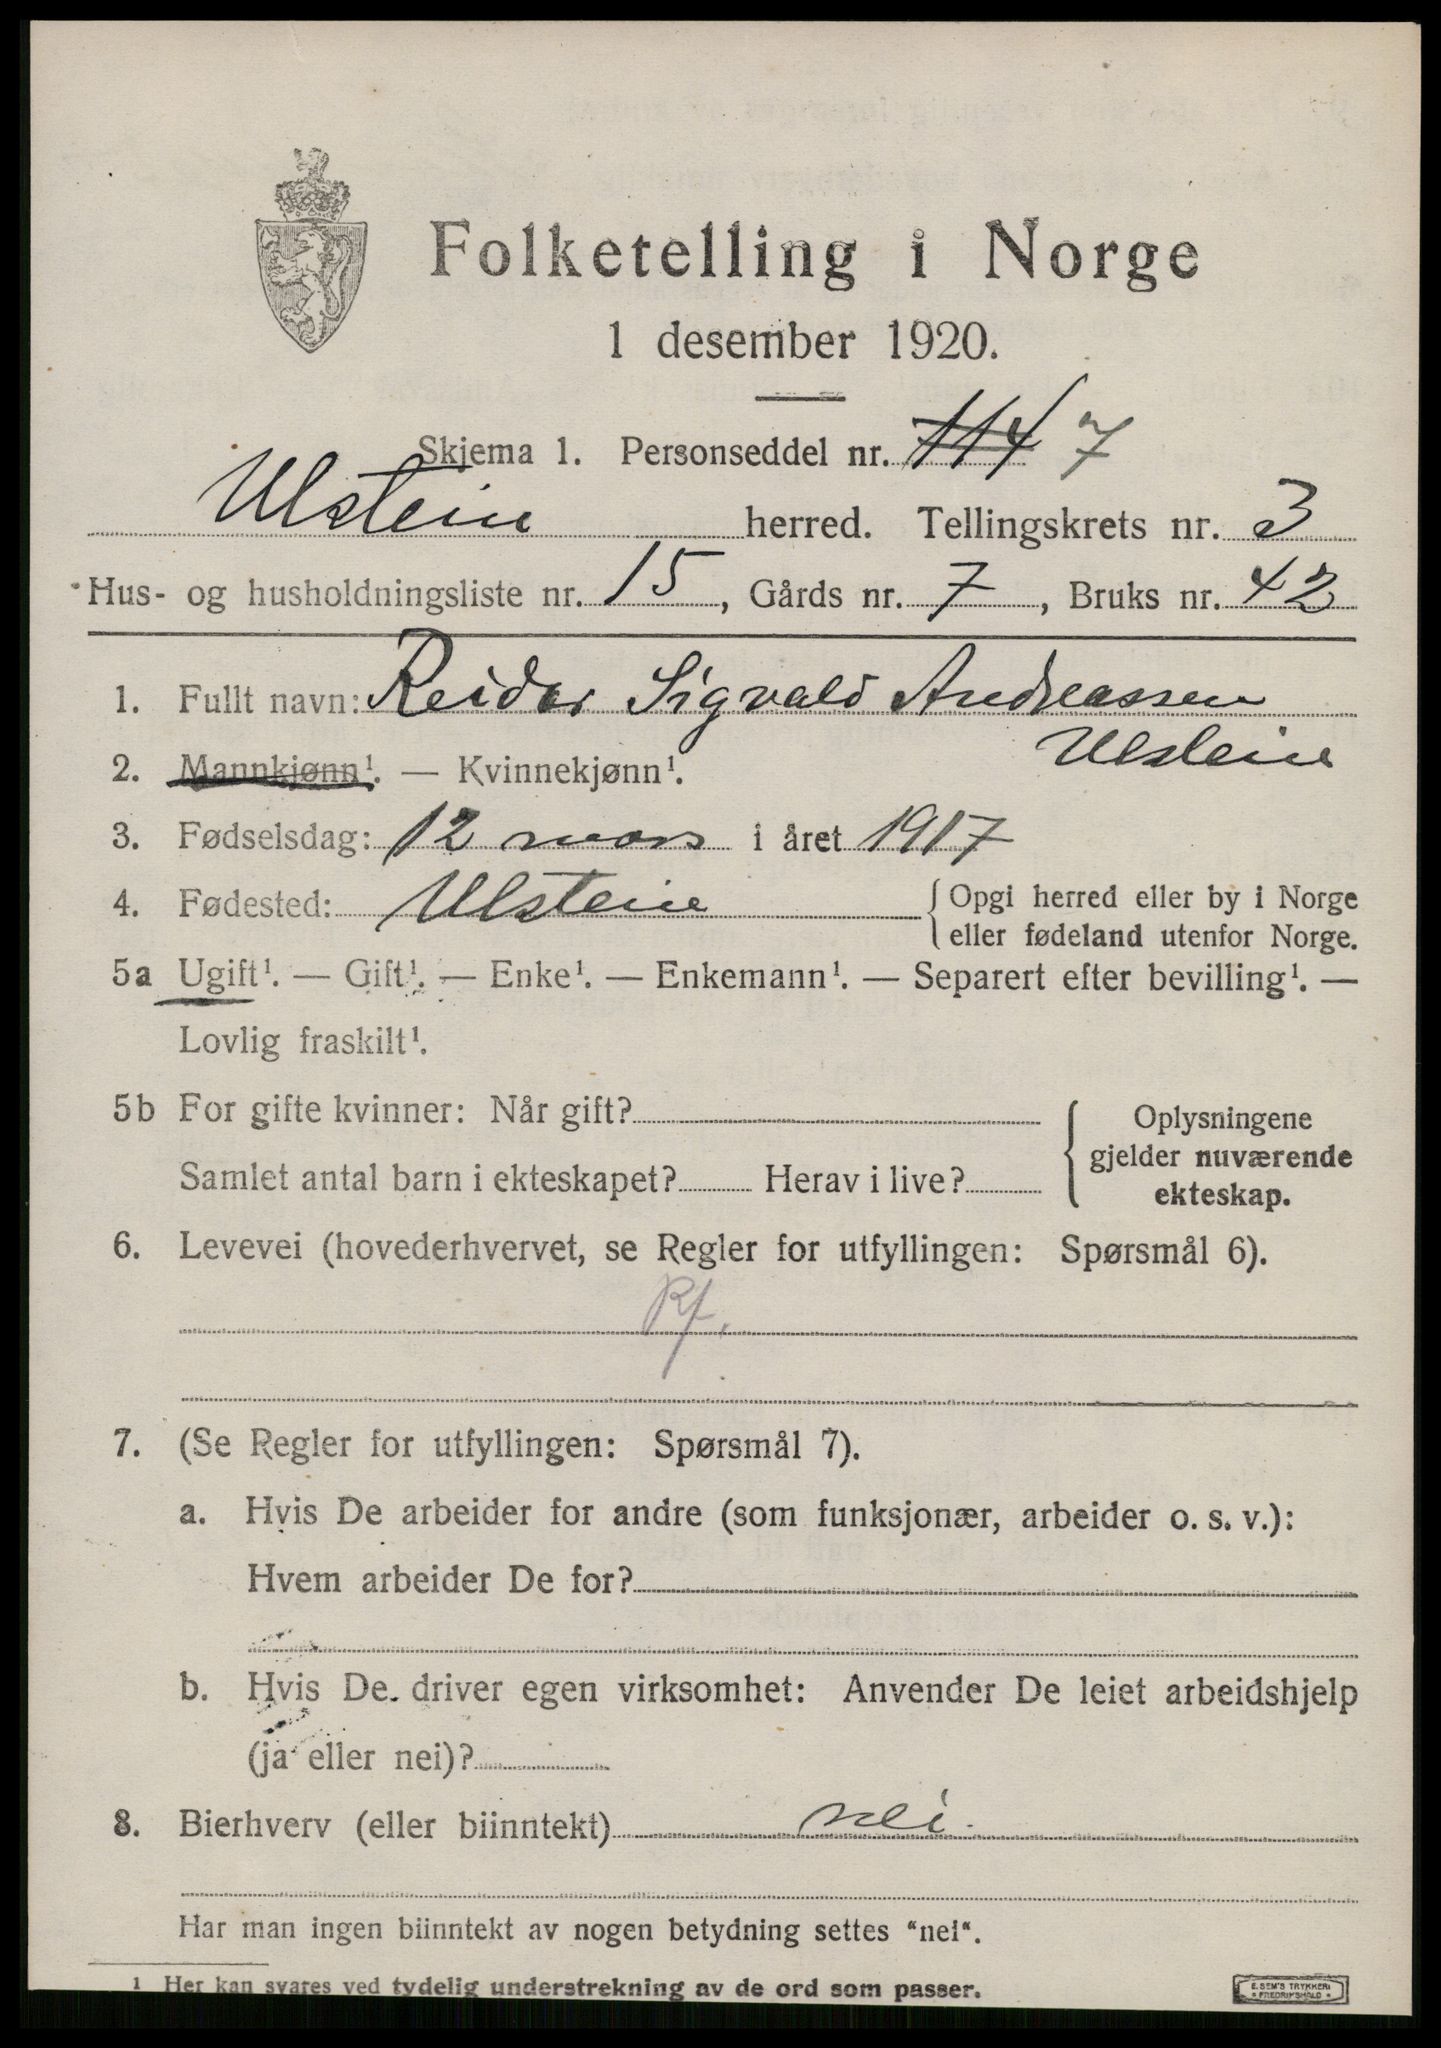 Folketelling i Norge
1 desember 1920.
Skjema 1. Personseddel nr. 114 7
Ulstein herred. Tellingskrets nr. 3
Hus- og husholdningsliste nr. 15, Gårds nr. 7, Bruks nr. 42
1. Fullt navn: Reidar Sigvald Andreassen
Ulstein
2. Mannkjønn¹. — Kvinnekjønn¹.
3. Fødselsdag: 12 mars i året 1917
4. Fødested: Ulstein { Opgi herred eller by i Norge
eller fødeland utenfor Norge.
5a Ugift¹. — Gift¹. — Enke¹. — Enkemann¹. — Separert efter bevilling¹. —
Lovlig fraskilt¹.
5b For gifte kvinner: Når gift?
Samlet antal barn i ekteskapet? Herav i live?
Oplysningene
gjelder nuværende
ekteskap.
6. Levevei (hovederhvervet, se Regler for utfyllingen: Spørsmål 6).
7. (Se Regler for utfyllingen: Spørsmål 7).
a. Hvis De arbeider for andre (som funksjonær, arbeider o. s. v.):
Hvem arbeider De for?
b. Hvis De driver egen virksomhet: Anvender De leiet arbeidshjelp
(ja eller nei)?
8. Bierhverv (eller biinntekt) nei.
Har man ingen biinntekt av nogen betydning settes "nei".
¹ Her kan svares ved tydelig understrekning av de ord som passer.
E. SEM'S TRYKKERI
FREDRIKSHALD